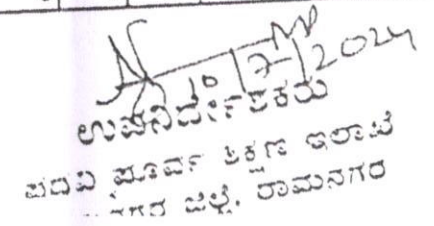 10/7/2024
ಉಪನಿರ್ದೇಶಕರು
ಪದವಿ ಪೂರ್ವ ಶಿಕ್ಷಣ ಇಲಾಖೆ
ಜಿಲ್ಲೆ, ರಾಮನಗರ